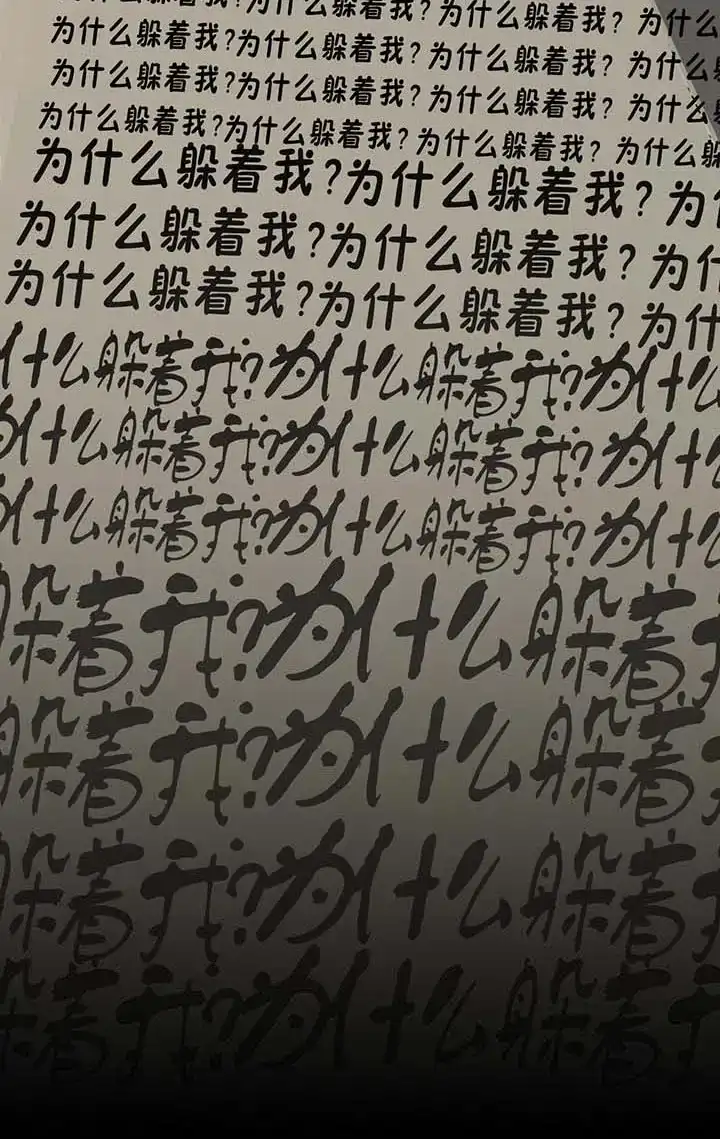 为什么躲着我?为什么躲着我?为什么躲着我?为什么
为什么躲着我?为什么躲着我?为什么躲着我?为什么
为什么躲着我?为什么躲着我?为什么躲着我?为什么
为什么躲着我?为什么躲着我?为什么躲着我?为什么躲
为什么躲着我?为什么躲着我?为什
为什么躲着我?为什么躲着我?为什
为什么躲着我?为什么躲着我?为什
什么躲着我?为什么躲着我?为什么
为什么躲着我?为什么躲着我?为什么
为什么躲着我?为什么躲着我?为什么
躲着我?为什么躲着
躲着我?为什么躲着
躲着我?为什么躲着
躲着我?为什么躲着